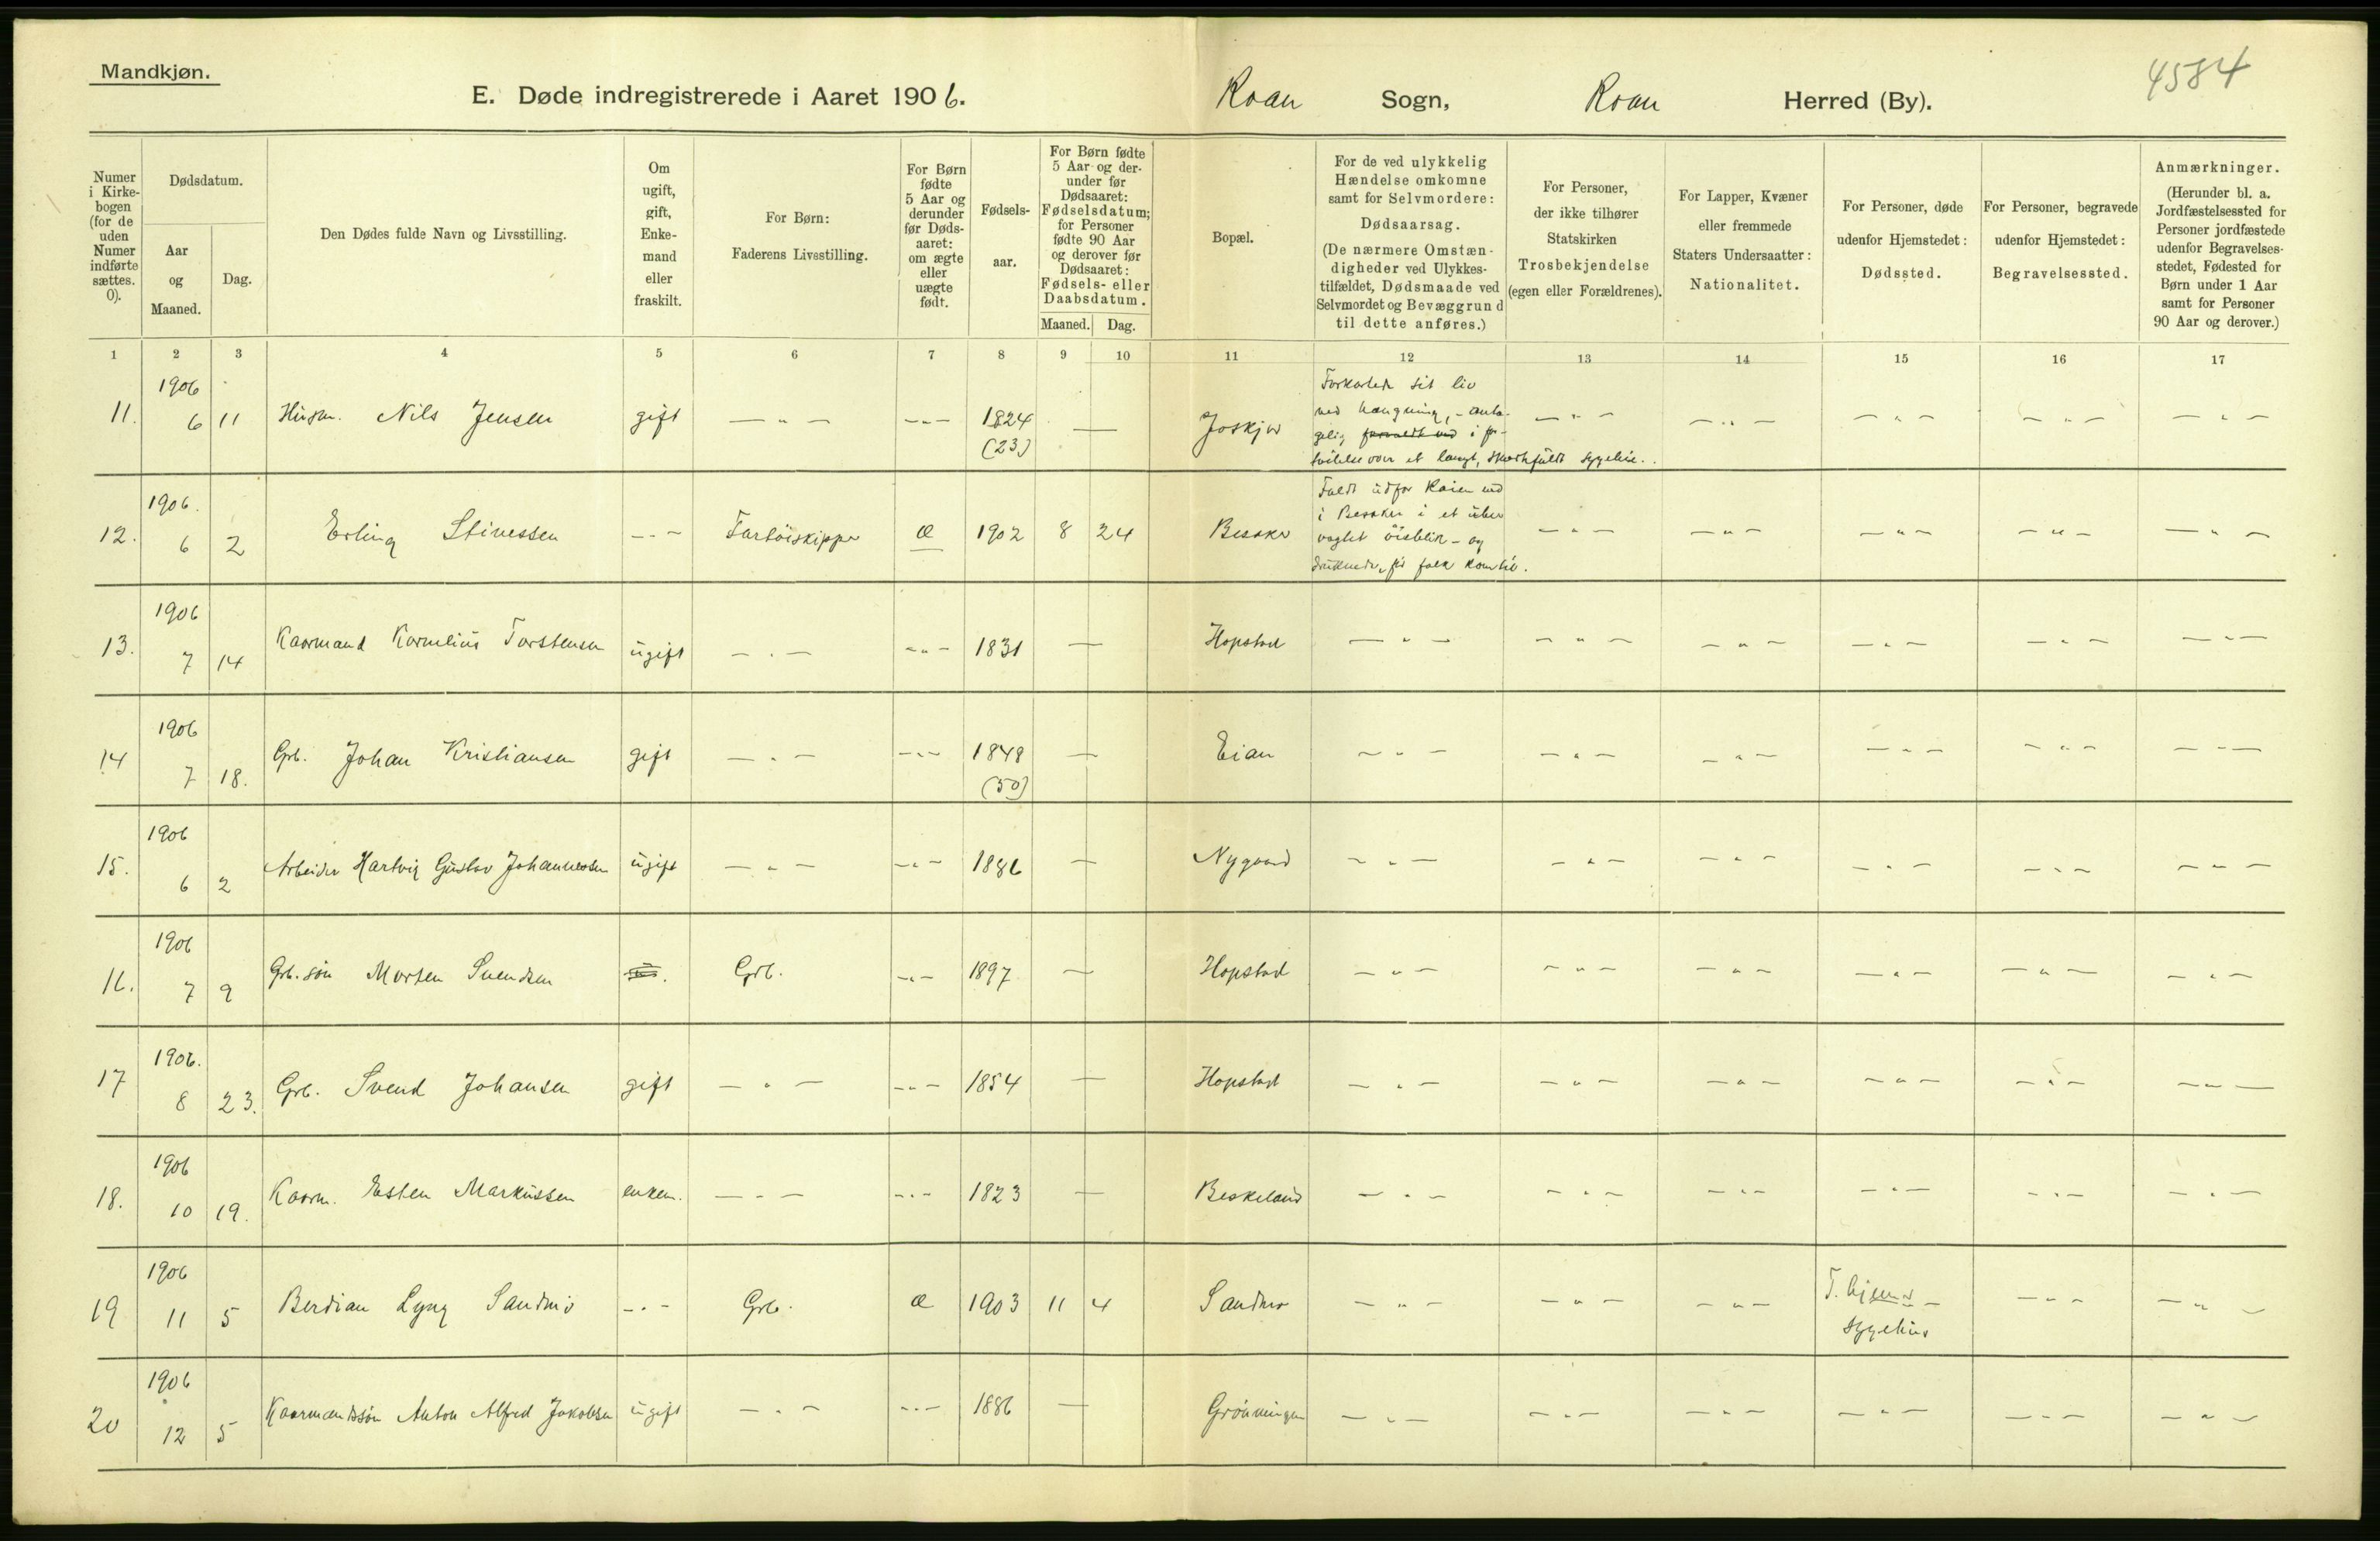 Mandkjøn.
4584
E. Døde indregistrerede i Aaret 1906.
Roan Sogn, Roan Herred (By).
Numer i Kirkebogen (for de uden Numer indførte sættes. 0).
Dødsdatum.
Aar og Maaned.
Dag.
Den Dødes fulde Navn og Livsstilling.
Om ugift, gift, Enkemand eller fraskilt.
For Børn: Faderens Livsstilling.
For Børn fødte 5 Aar og derunder før Dødsaaret: om ægte eller uægte født.
Fødselsaar.
For Børn fødte 5 Aar og derunder før Dødsaaret: Fødselsdatum; for Personer fødte 90 Aar og derover før Dødsaaret: Fødsels- eller Daabsdatum.
Maaned. Dag.
Bopæl.
For de ved ulykkelig Hændelse omkomne samt for Selvmordere: Dødsaarsag. (De nærmere Omstændigheder ved Ulykkestilfældet, Dødsmaade ved Selvmordet og Bevæggrund til dette anføres.)
For Personer, der ikke tilhører Statskirken Trosbekjendelse (egen eller Forældrenes).
For Lapper, Kvæner eller fremmede Staters Undersaatter: Nationalitet.
For Personer, døde udenfor Hjemstedet: Dødssted.
For Personer, begravede udenfor Hjemstedet: Begravelsessted.
Anmærkninger. (Herunder bl. a. Jordfæstelsessted for Personer jordfæstede udenfor Begravelsesstedet, Fødested for Børn under 1 Aar samt for Personer 90 Aar og derover.)
1 2 3 4 5 6 7 8 9 10 11 12 13 14 15 16 17
11. 1906 6 11 Husm. Nils Jensen gift — " — — " — 1824 (23) —
Forkortede sit liv
ved hængning, - anta-
gelig i for-
tvilelse over et langt, smertefuldt sygeleie.
12. 1906. 6 2 Erling Stinessen — " — Fartöiskipper æ 1902 8 24 Bessaker
Faldt udfor Kaien ved
i Bessaker i et ube
vogtet öieblik - og
druknede, før folk kom til.
13. 1906 7 14 Kaarmand Kornelius Torstensen ugift — " — — " — 1831 — Hopstad
14 1906 7 18. Grb. Johan Kristiansen gift — " — — " — 1848 (50) — Eian
15. 1906 6 2 Arbeider Hartvig Gustav Johannessen ugift — " — — " — 1886 — Nygaard
16. 1906 7 9 Grb. sön Morten Svendsen Grb. — " — 1897 — Hopstad
17 1906. 8 23. Grb. Svend Johansen gift — " — — " — 1854 — Hopstad
18. 1906 10 19. Kaarm. Esten Markussen enkem. — " — — " — 1823 — Beskeland
19 1906 11 5 Berdian Lyng Sandmo — " — Grb. æ 1903 11 4 Sandmo
T. hjems
sygehus
20 1906 12 5 Kaarmandssön Anton Alfred Jakobsen ugift — " — — " — 1886 — Grönningen